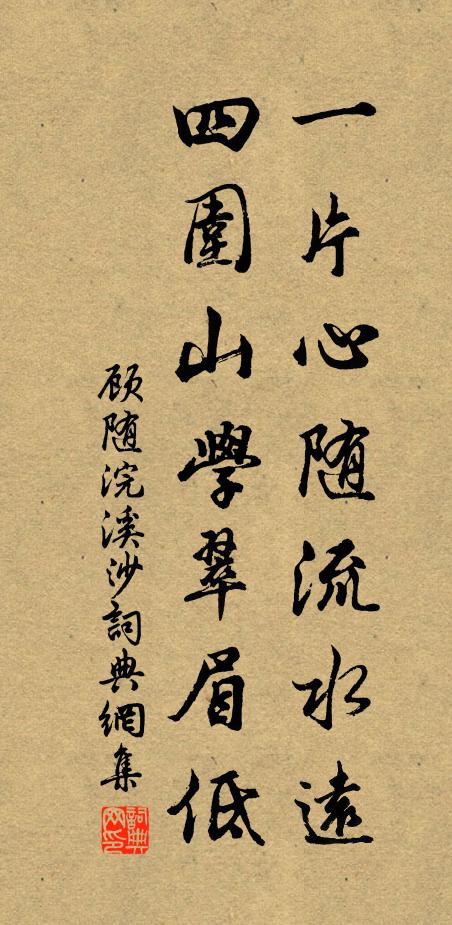 一片心随流水遠
四圍山學翠眉低
顾随浣溪沙詞典網集
詞典网印